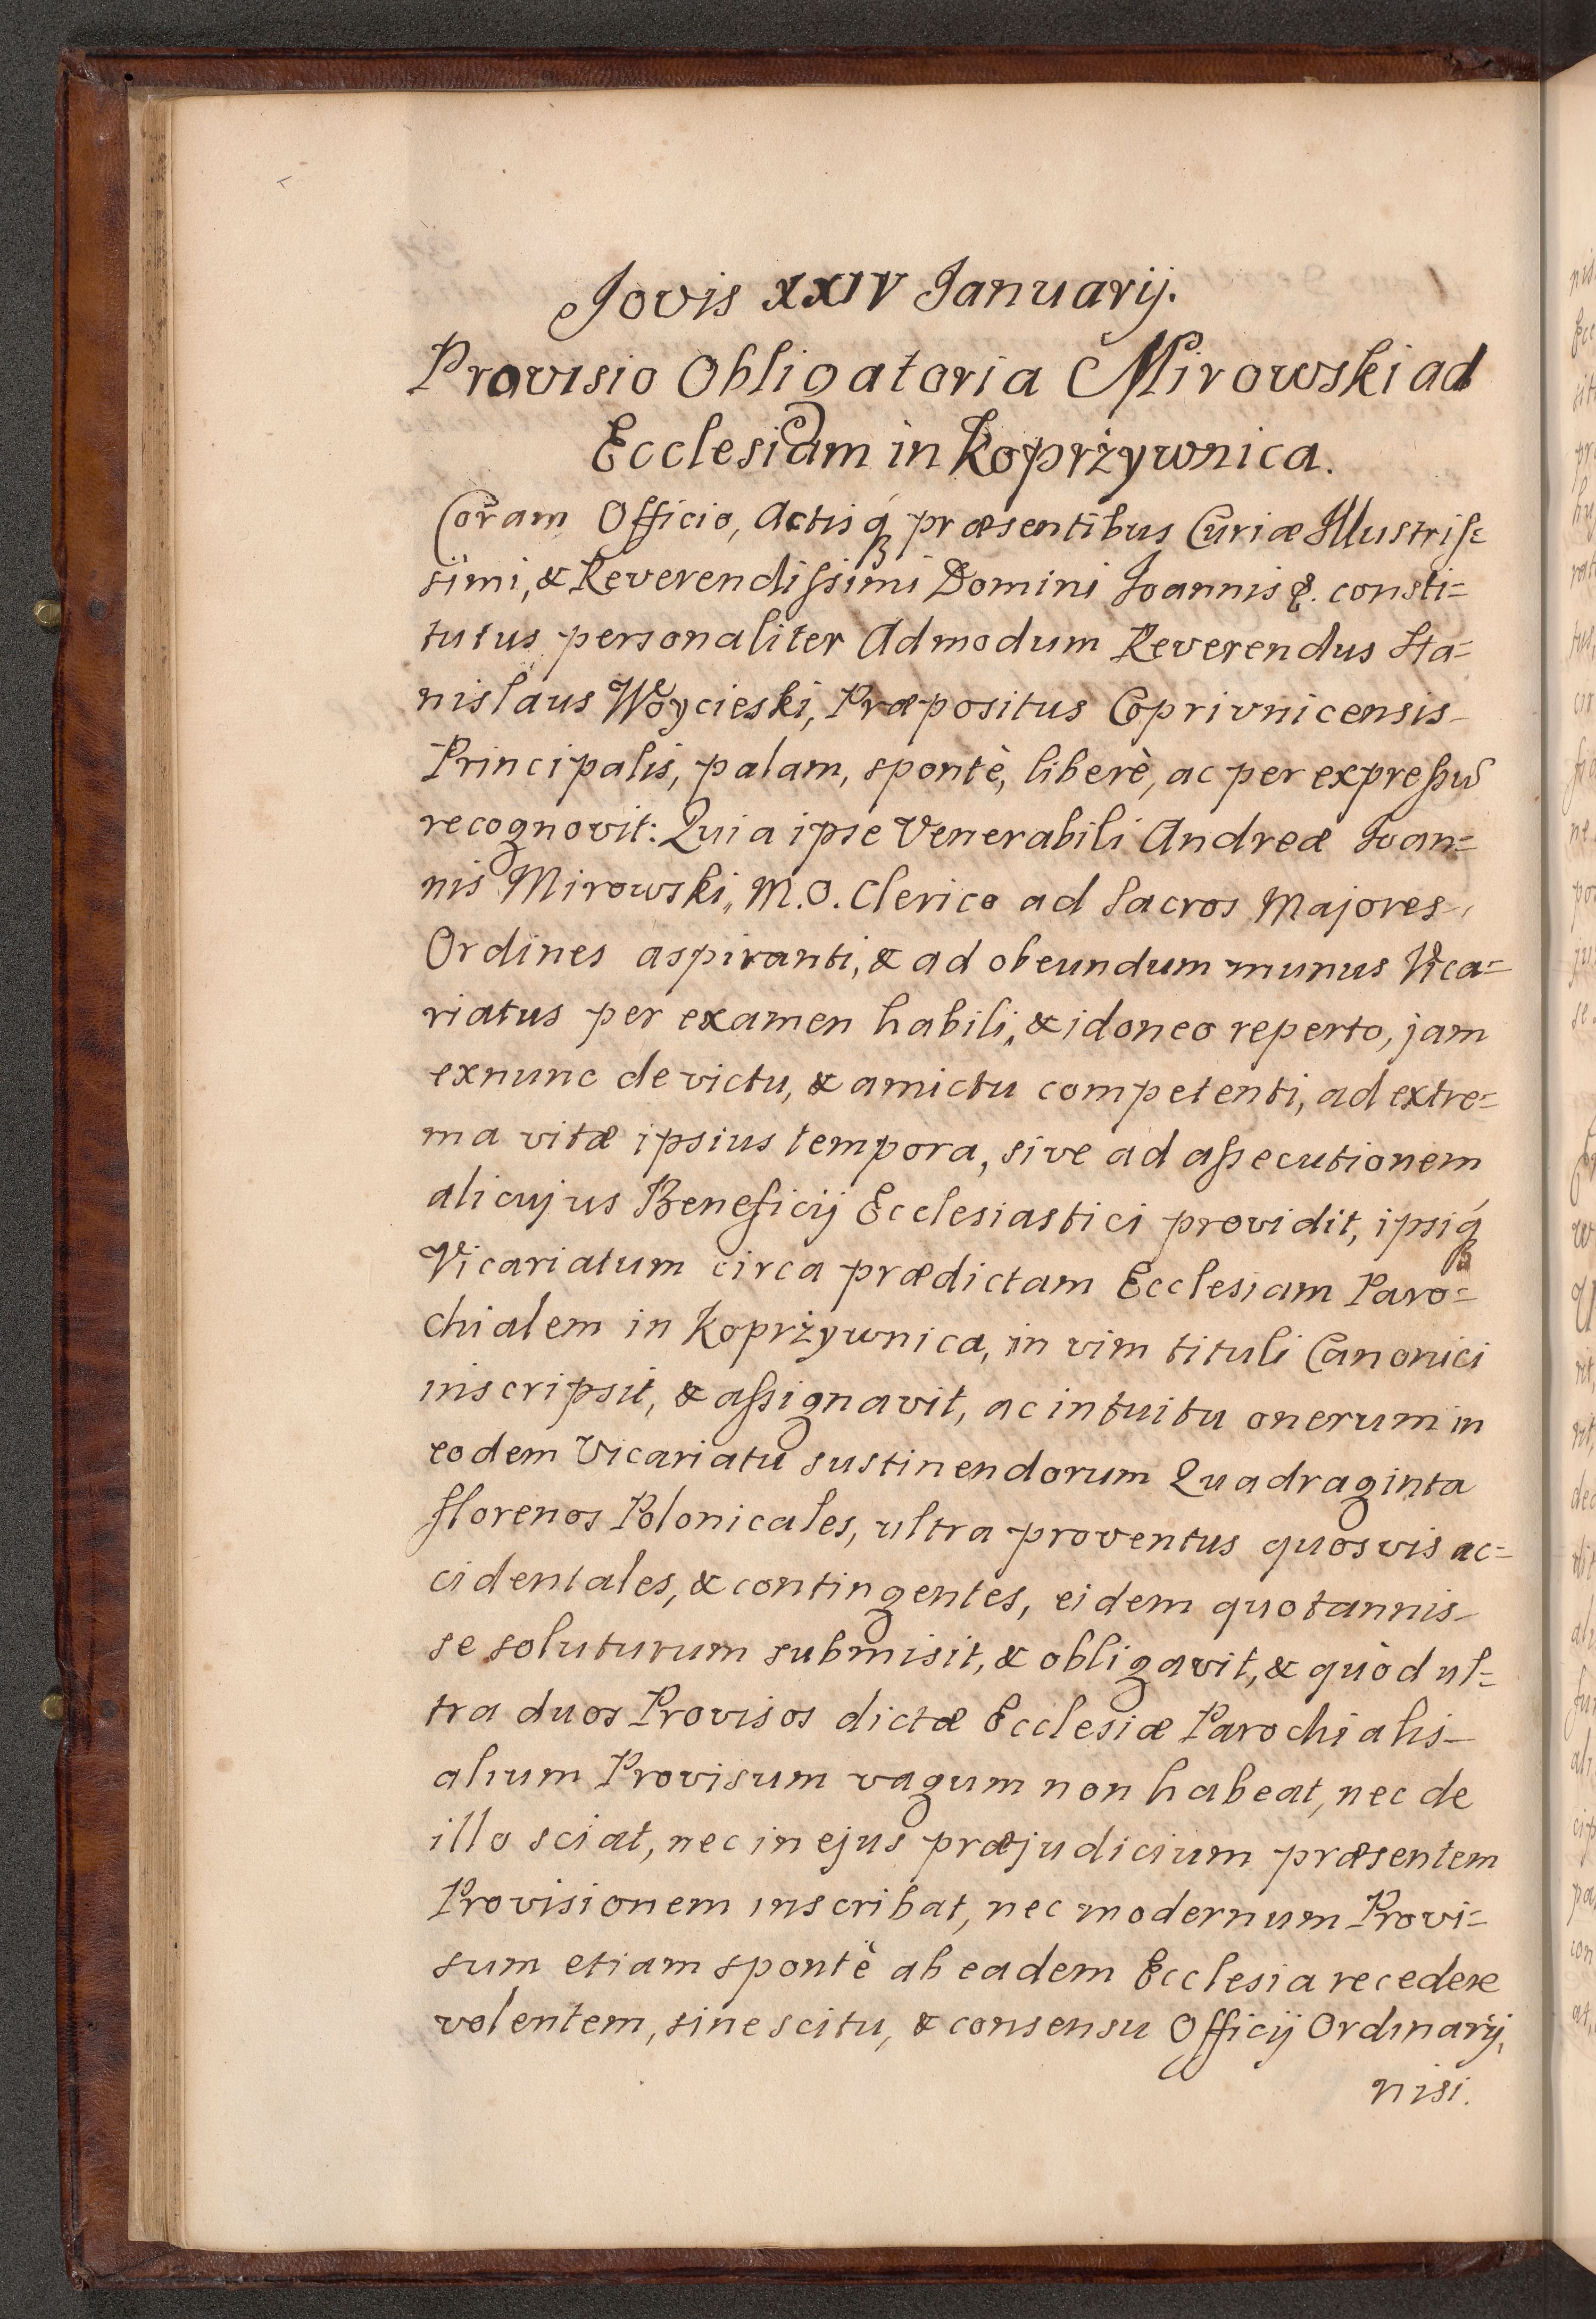 Jovis XXIV Januarij.
Provisio Obligatoria Mirowski ad
Ecclesiam in Koprżywnica.
Coram Officio, Actisq́ꝫ præsentibus Curiæ Illustriſ=
simi, & Reverendiſsimi Domini Joannis &. consti=
tutus personaliter Admodum Reverendus Sta=
nislaus Woycieski, Præpositus Coprivnicensis
Principalis, palam, spontè, liberè, ac per expreſsũ
recognovit: Quia ipse Venerabili Andreæ Joan=
nis Mirowski, M.O. Clerico ad Sacros Majores
Ordines aspiranti, & ad obeundum munus Vica=
riatus per examen habili, & idoneo reperto, jam
exnunc de victu, & amictu competenti, ad extre=
ma vitæ ipsius tempora, sive ad aſsecutionem
alicujus Beneficij Ecclesiastici providit, ipsiq́ꝫ
Vicariatum circa prædictam Ecclesiam Paro=
chialem in Koprżywnica, in vim tituli Canonici
inscripsit, & aſsignavit, ac intuitu onerum in
eodem Vicariatu sustinendorum Quadraginta
florenos Polonicales, ultra proventus quosvis ac=
cidentales, & contingentes, eidem quotannis
se soluturum submisit, & obligavit, & quòd ul=
tra duos Provisos dictæ Ecclesiæ Parochialis
alium Provisum vagum non habeat, nec de
illo sciat, nec in ejus præjudicium præsentem
Provisionem inscribat, nec modernum Provi=
sum etiam spontè ab eadem Ecclesia recedere
volentem, sine scitu, & consensu Officij Ordinarij,
nisi.